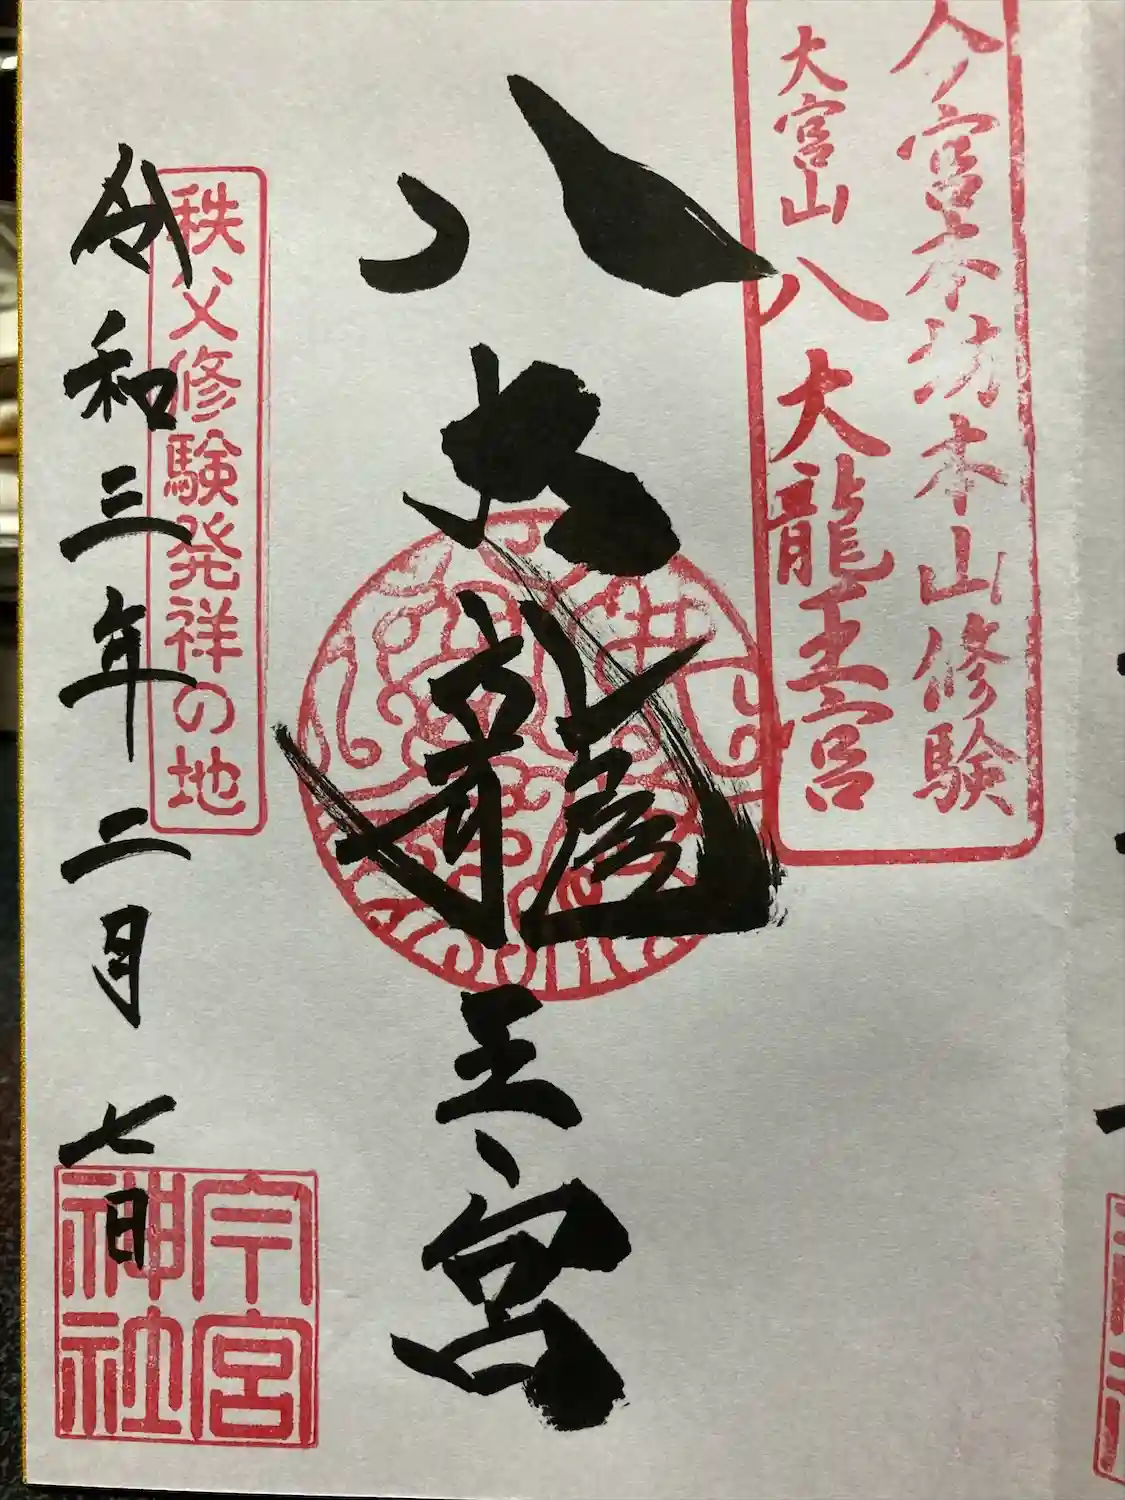 今宮本坊本山修験
大宮山 八大龍王宮
八大龍王宮
秩父修験発祥の地
令和三年二月七日
今宮
神社